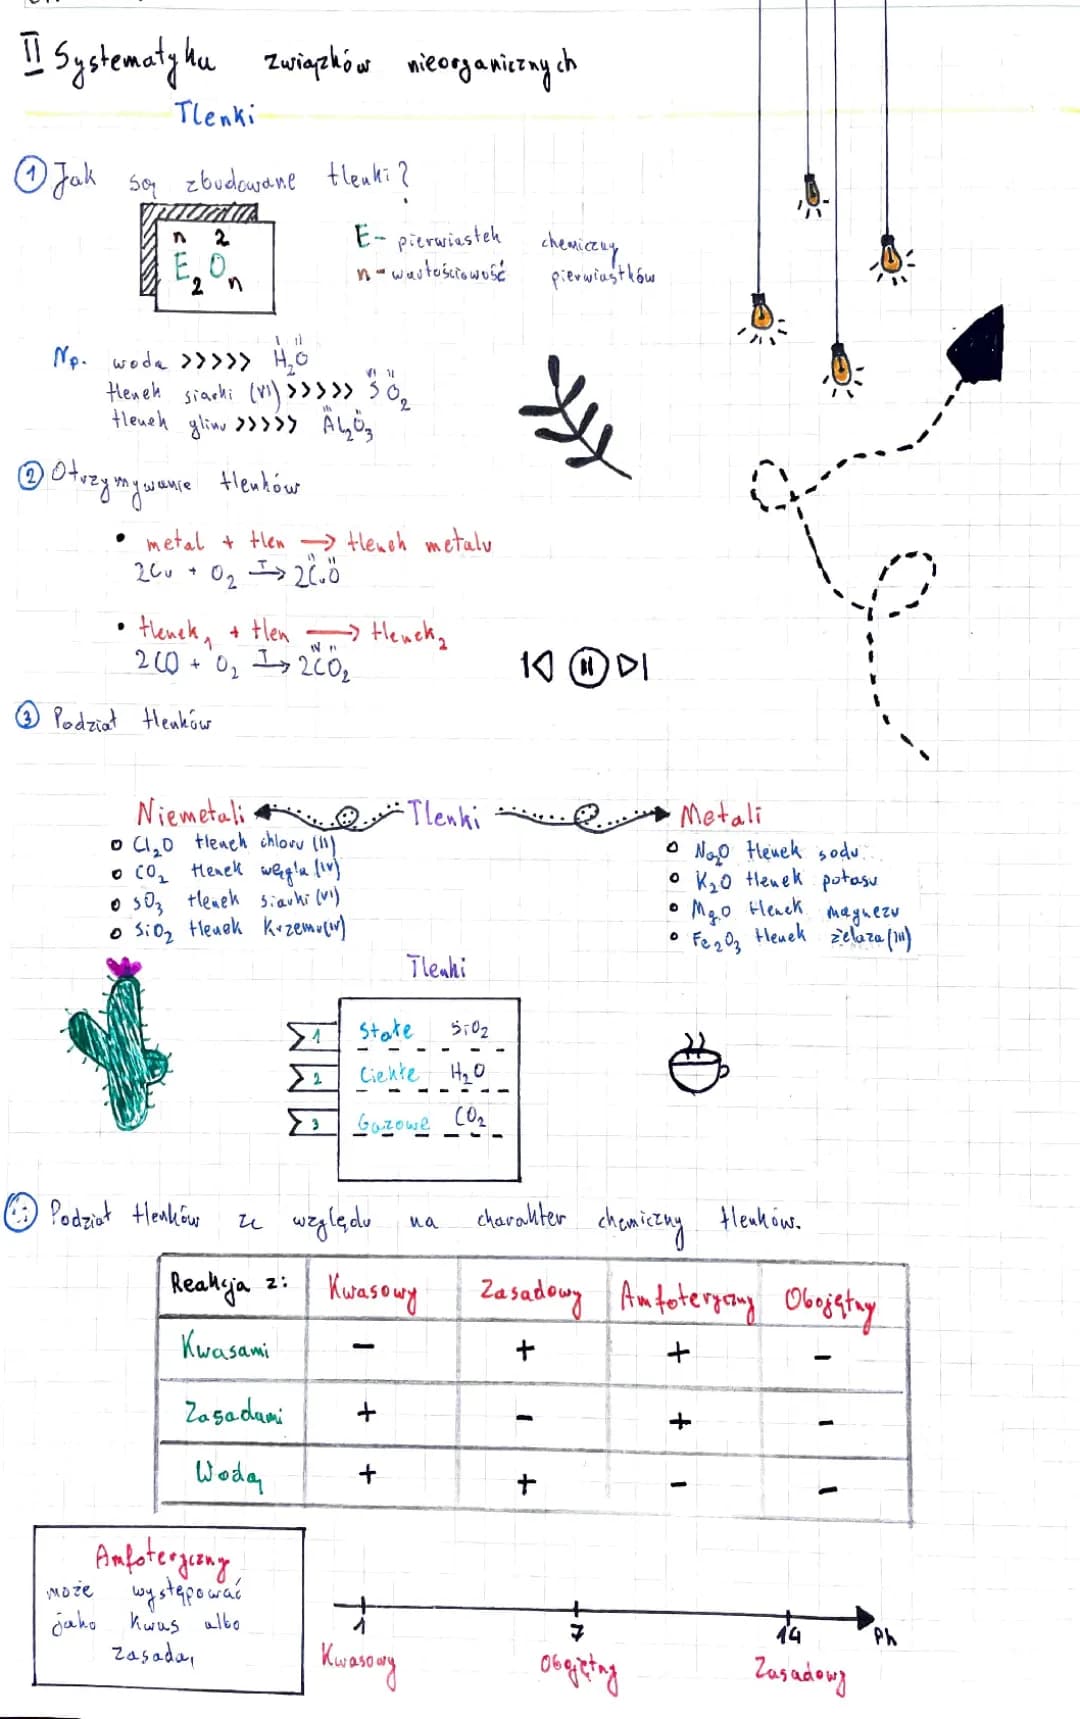 II Systematyka związków nieorganicznych
Tlenki
1 Jak są zbudowane tlenki?
n 2
E2On
E - pierwiastek chemiczny
n - wartościowość pierwiastków
Np. woda >>>>> H2O
I II
tlenek siarki (VI) >>>>> SO2
VI II
tlenek glinu >>>>> Al2O3
III II
2 Otrzymywanie tlenków
• metal + tlen → tlenek metalu
2Cu + O2 T→ 2CuO
II II
• tlenek1 + tlen → tlenek2
2CO + O2 T→ 2CO2
IV II
3 Podział tlenków
Niemetali Tlenki Metali
Cl2O tlenek chloru (II)
CO2 tlenek węgla (IV)
SO3 tlenek siarki (VI)
SiO2 tlenek krzemu (IV)
Na2O tlenek sodu
K2O tlenek potasu
MgO tlenek magnezu
Fe2O3 tlenek żelaza (III)
Tlenki
1 Stałe SiO2
2 Ciekłe H2O
3 Gazowe CO2
Podział tlenków ze względu na charakter chemiczny tlenków.
Reakcja z: Kwasowy Zasadowy Amfoteryczny Obojętny
Kwasami - + + -
Zasadami + - + -
Wodą + + - -
Amfoteryczny
może występować
jako kwas albo
zasada,
1 7 14 Ph
Kwasowy Obojętny Zasadowy